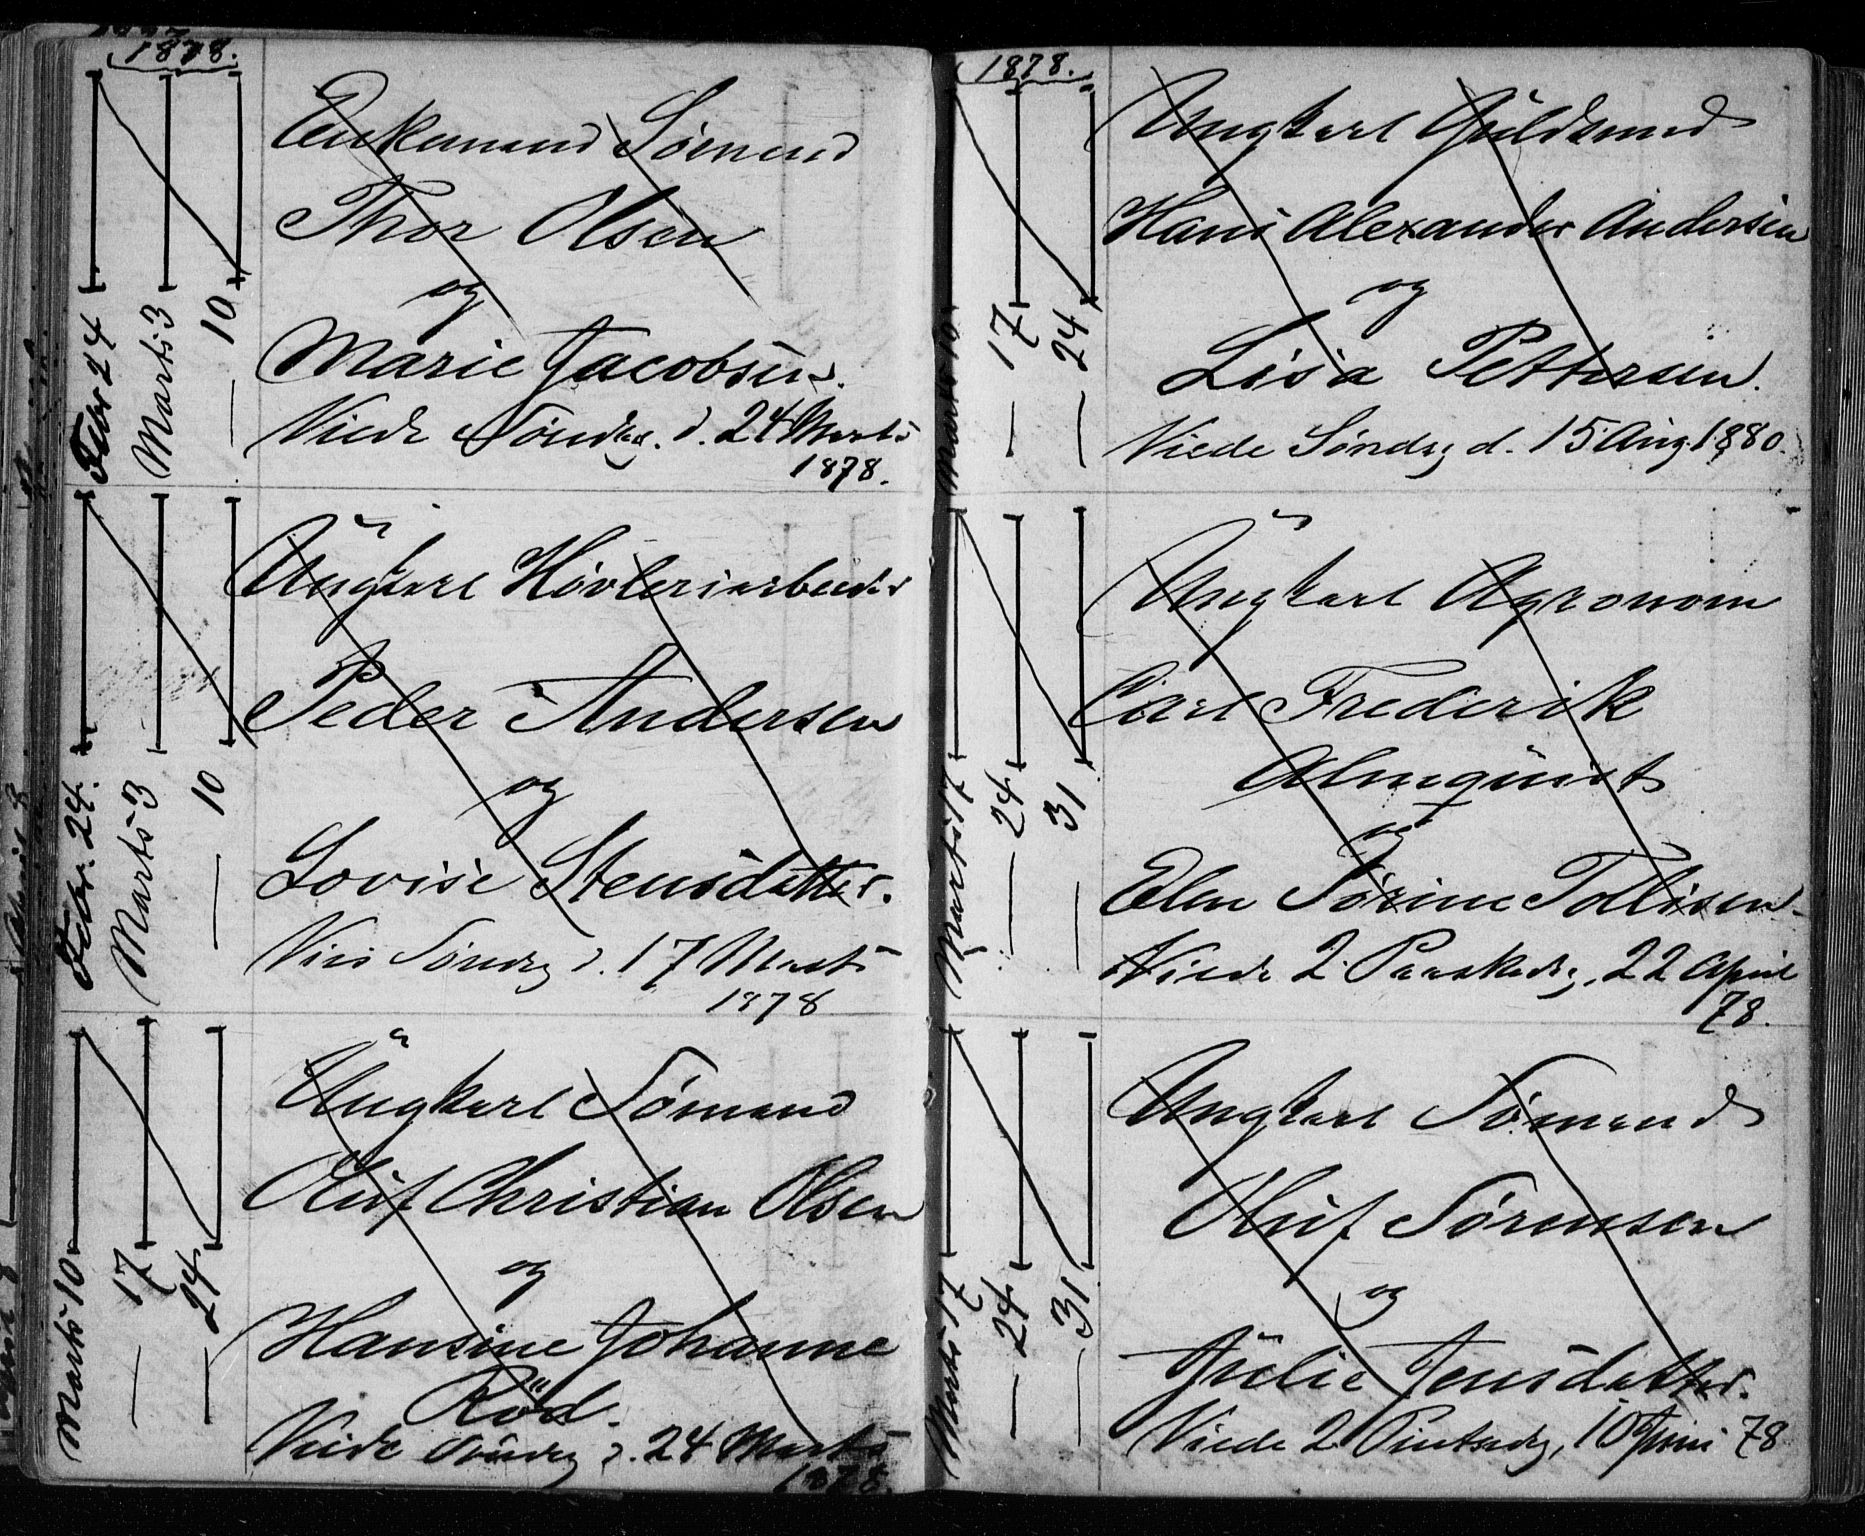 1878.
Febr 24
Marts 3
— 10
Enkemand Sømand
Thor Olsen
og
Marie Jacobsen.
Viede Søndag d. 24 Marts
1878.
Febr. 24.
Marts 3
— 10
Ungkarl Høvleriarbeider
Peder Andersen
og
Lovise Stensdatter.
Viei Søndag d. 17 Marts
1878
Marts 10
— 17
— 24
Ungkarl Sømand
Oluf Christian Olsen
og
Hansine Johanne
Röd.
Viede Søndag d. 24 Marts
1878.
1878.
Marts 10
— 17
— 24
Ungkarl Guldsmed
Hans Alexander Andersen
og
Lisa Pettersen.
Viede Søndag d. 15 Aug 1880.
Marts 17
— 24
— 31
Ungkarl Agronom
Carl Frederik
Almquist
og
Elen Sørine Tollisen
Viede 2 Paaskedag, 22 April
78.
Marts 17
— 24
— 31
Ungkarl Sømand
Oluf Sørensen
og
Julie Jensdatter.
Viede 2 Pintsedag, 10 Juni 78